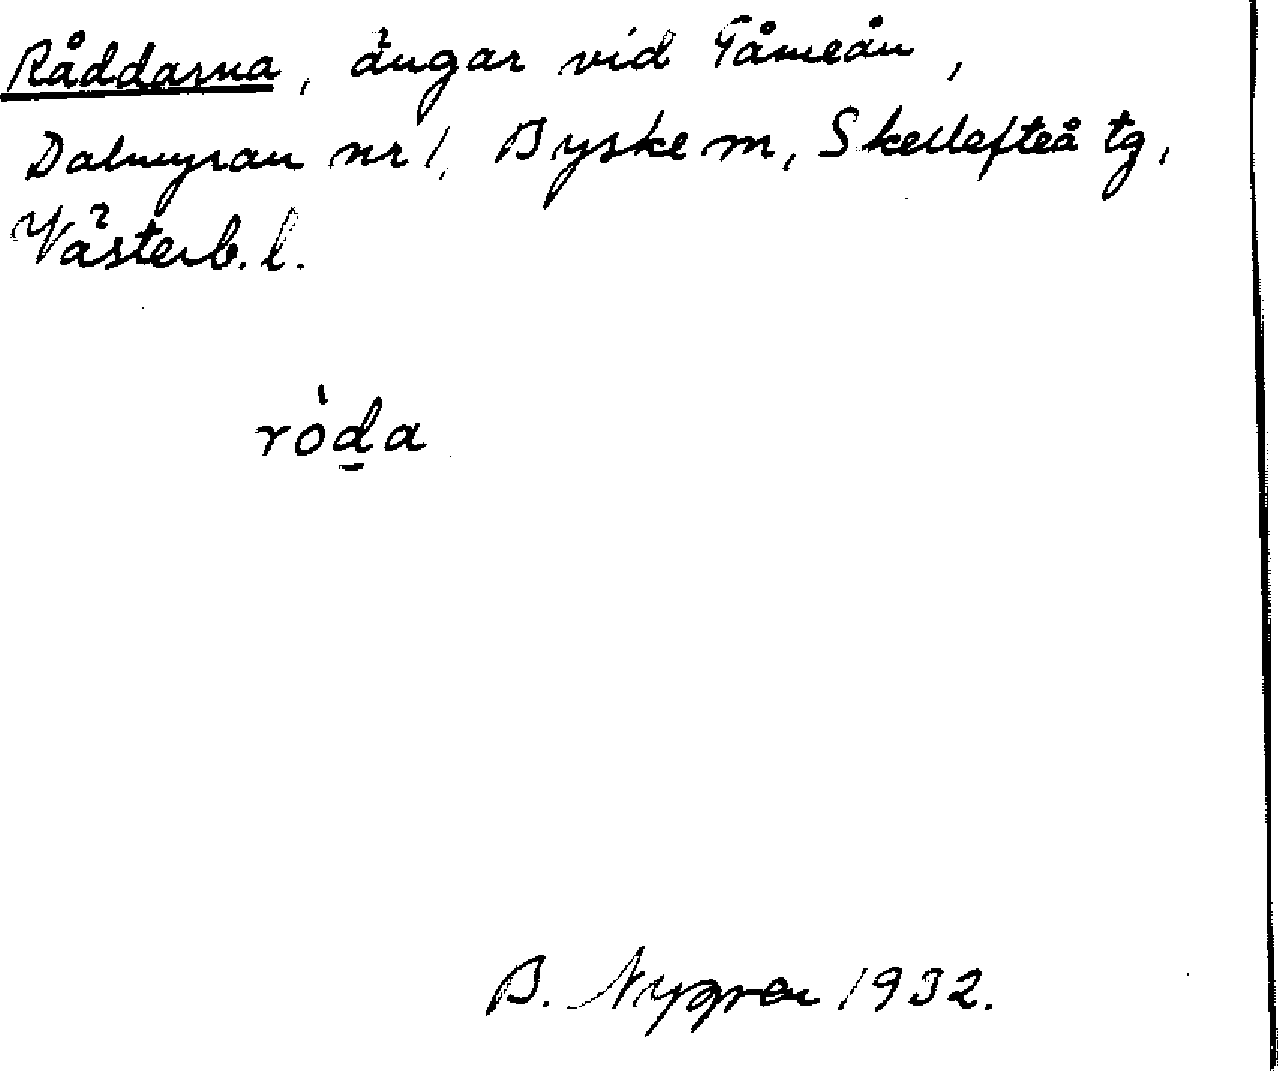 Råddarna, ängar vid Tåmeån,
Dalmyran nr 1, Byske m, Skellefteå tg,
Västerb. l.
ròḏa
B. Nygren 1932.